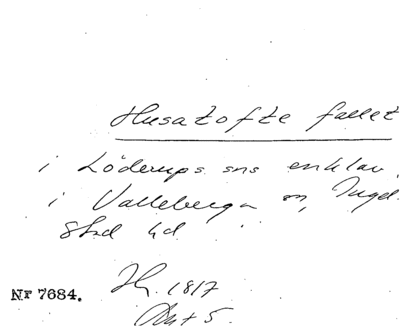 Husatofte fallet
i Löderups sns enklav
i Valleberga sn, Ingel-
stad hd
Nr 7684.
H. 1817
Akt 5.